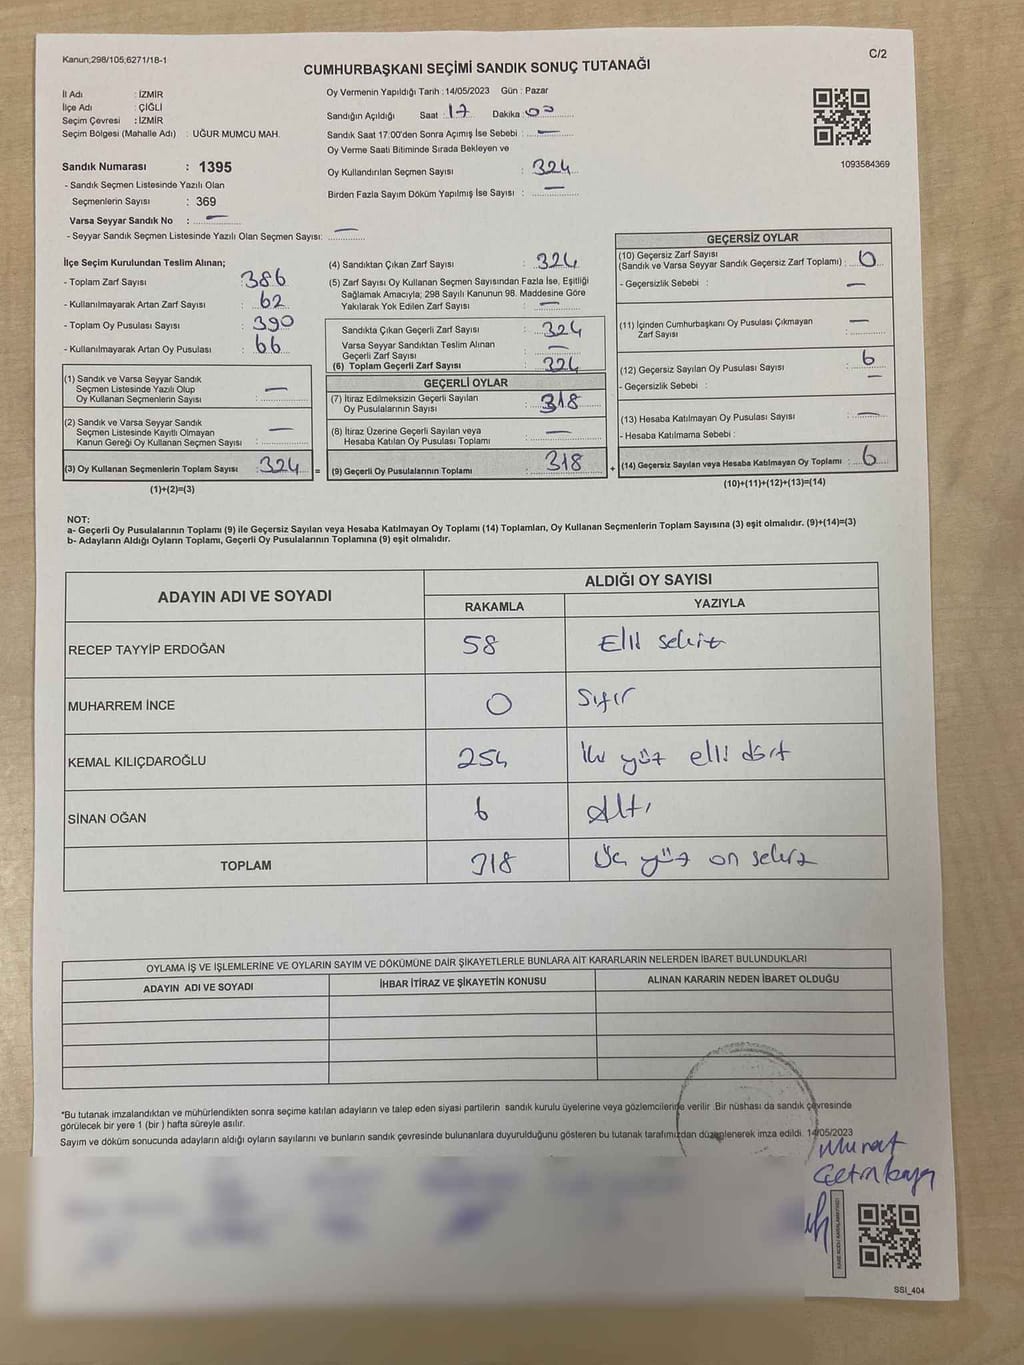 Kanun,298/105,6271/18-1
C/2
CUMHURBAŞKANI SEÇİMİ SANDIK SONUÇ TUTANAĞI
İl Adı : İZMİR
İlçe Adı : ÇİĞLİ
Seçim Çevresi : İZMİR
Seçim Bölgesi (Mahalle Adı) : UĞUR MUMCU MAH.
Sandık Numarası : 1395
- Sandık Seçmen Listesinde Yazılı Olan
Seçmenlerin Sayısı : 369
Varsa Seyyar Sandık No : —
- Seyyar Sandık Seçmen Listesinde Yazılı Olan Seçmen Sayısı: —
Oy Vermenin Yapıldığı Tarih : 14/05/2023 Gün : Pazar
Sandığın Açıldığı Saat : 17 Dakika : 00
Sandık Saat 17:00'den Sonra Açımış İse Sebebi : —
Oy Verme Saati Bitiminde Sırada Bekleyen ve
Oy Kullandırılan Seçmen Sayısı : 324
Birden Fazla Sayım Döküm Yapılmış İse Sayısı : —
1093584369
İlçe Seçim Kurulundan Teslim Alınan;
- Toplam Zarf Sayısı : 386
- Kullanılmayarak Artan Zarf Sayısı : 62
- Toplam Oy Pusulası Sayısı : 390
- Kullanılmayarak Artan Oy Pusulası : 66
(1) Sandık ve Varsa Seyyar Sandık
Seçmen Listesinde Yazılı Olup
Oy Kullanan Seçmenlerin Sayısı : —
(2) Sandık ve Varsa Seyyar Sandık
Seçmen Listesinde Kayıtlı Olmayan
Kanun Gereği Oy Kullanan Seçmen Sayısı : —
(3) Oy Kullanan Seçmenlerin Toplam Sayısı : 324 =
(1)+(2)=(3)
(4) Sandıktan Çıkan Zarf Sayısı : 324
(5) Zarf Sayısı Oy Kullanan Seçmen Sayısından Fazla İse, Eşitliği
Sağlamak Amacıyla; 298 Sayılı Kanunun 98. Maddesine Göre
Yakılarak Yok Edilen Zarf Sayısı : —
Sandıkta Çıkan Geçerli Zarf Sayısı : 324
Varsa Seyyar Sandıktan Teslim Alınan
Geçerli Zarf Sayısı : —
(6) Toplam Geçerli Zarf Sayısı : 324
GEÇERLİ OYLAR
(7) İtiraz Edilmeksizin Geçerli Sayılan
Oy Pusulalarının Sayısı : 318
(8) İtiraz Üzerine Geçerli Sayılan veya
Hesaba Katılan Oy Pusulası Toplamı : —
(9) Geçerli Oy Pusulalarının Toplamı : 318 +
GEÇERSİZ OYLAR
(10) Geçersiz Zarf Sayısı
(Sandık ve Varsa Seyyar Sandık Geçersiz Zarf Toplamı) : 0
- Geçersizlik Sebebi : —
(11) İçinden Cumhurbaşkanı Oy Pusulası Çıkmayan
Zarf Sayısı : —
(12) Geçersiz Sayılan Oy Pusulası Sayısı : 6
- Geçersizlik Sebebi : —
(13) Hesaba Katılmayan Oy Pusulası Sayısı : —
- Hesaba Katılmama Sebebi :
(14) Geçersiz Sayılan veya Hesaba Katılmayan Oy Toplamı : 6
(10)+(11)+(12)+(13)=(14)
NOT:
a- Geçerli Oy Pusulalarının Toplamı (9) ile Geçersiz Sayılan veya Hesaba Katılmayan Oy Toplamı (14) Toplamları, Oy Kullanan Seçmenlerin Toplam Sayısına (3) eşit olmalıdır. (9)+(14)=(3)
b- Adayların Aldığı Oyların Toplamı, Geçerli Oy Pusulalarının Toplamına (9) eşit olmalıdır.
ADAYIN ADI VE SOYADI ALDIĞI OY SAYISI
RAKAMLA YAZIYLA
RECEP TAYYİP ERDOĞAN 58 Elli sekiz
MUHARREM İNCE 0 Sıfır
KEMAL KILIÇDAROĞLU 254 iki yüz elli dört
SİNAN OĞAN 6 Altı
TOPLAM 318 Üç yüz on sekiz
OYLAMA İŞ VE İŞLEMLERİNE VE OYLARIN SAYIM VE DÖKÜMÜNE DAİR ŞİKAYETLERLE BUNLARA AİT KARARLARIN NELERDEN İBARET BULUNDUKLARI
ADAYIN ADI VE SOYADI İHBAR İTİRAZ VE ŞİKAYETİN KONUSU ALINAN KARARIN NEDEN İBARET OLDUĞU
*Bu tutanak imzalandıktan ve mühürlendikten sonra seçime katılan adayların ve talep eden siyasi partilerin sandık kurulu üyelerine veya gözlemcilerine verilir. Bir nüshası da sandık çevresinde
görülecek bir yere 1 (bir ) hafta süreyle asılır.
Sayım ve döküm sonucunda adayların aldığı oyların sayılarını ve bunların sandık çevresinde bulunanlara duyurulduğunu gösteren bu tutanak tarafımızdan düzenlenerek imza edildi. 14/05/2023
Murat
Çetinkaya
SSI_404